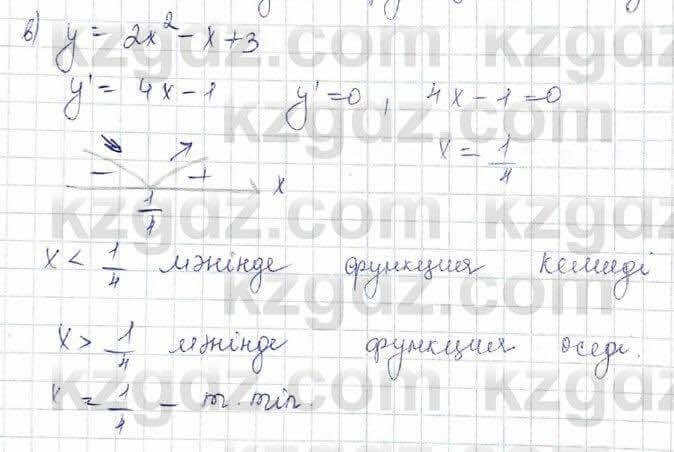 в) y = 2x² - x + 3
y' = 4x - 1 y' = 0, 4x - 1 = 0
x = 1/4
- + x
1/4
x < 1/4 мәнінде функция кемиді
x > 1/4 мәнінде функция өседі.
x = 1/4 - m. min.
kzgdz.com
kzgdz.com
kzgdz.com
kzgdz.com
kzgdz.com